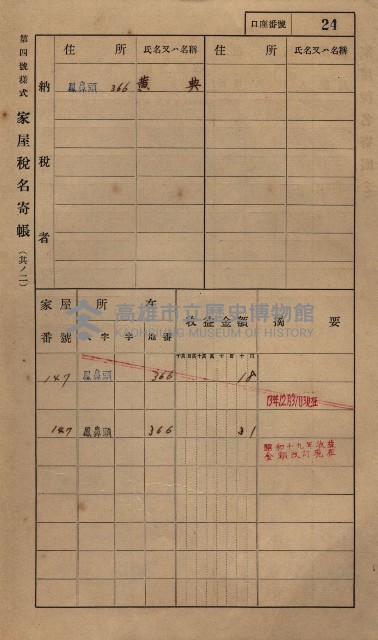 口座番號 24
第四號樣式 家屋稅名寄帳 (其ノ二)
納稅者
住所 氏名又ハ名稱 住所 氏名又ハ名稱
鳳鼻頭 366 黃典
家屋番號 所在 收益金額 摘要
大字 字 地番
147 鳳鼻頭 366 18
13年12月31日現在
147 鳳鼻頭 366 31
昭和十九年收益
金額改訂現在
高雄市立歷史博物館
KAOHSIUNG MUSEUM OF HISTORY